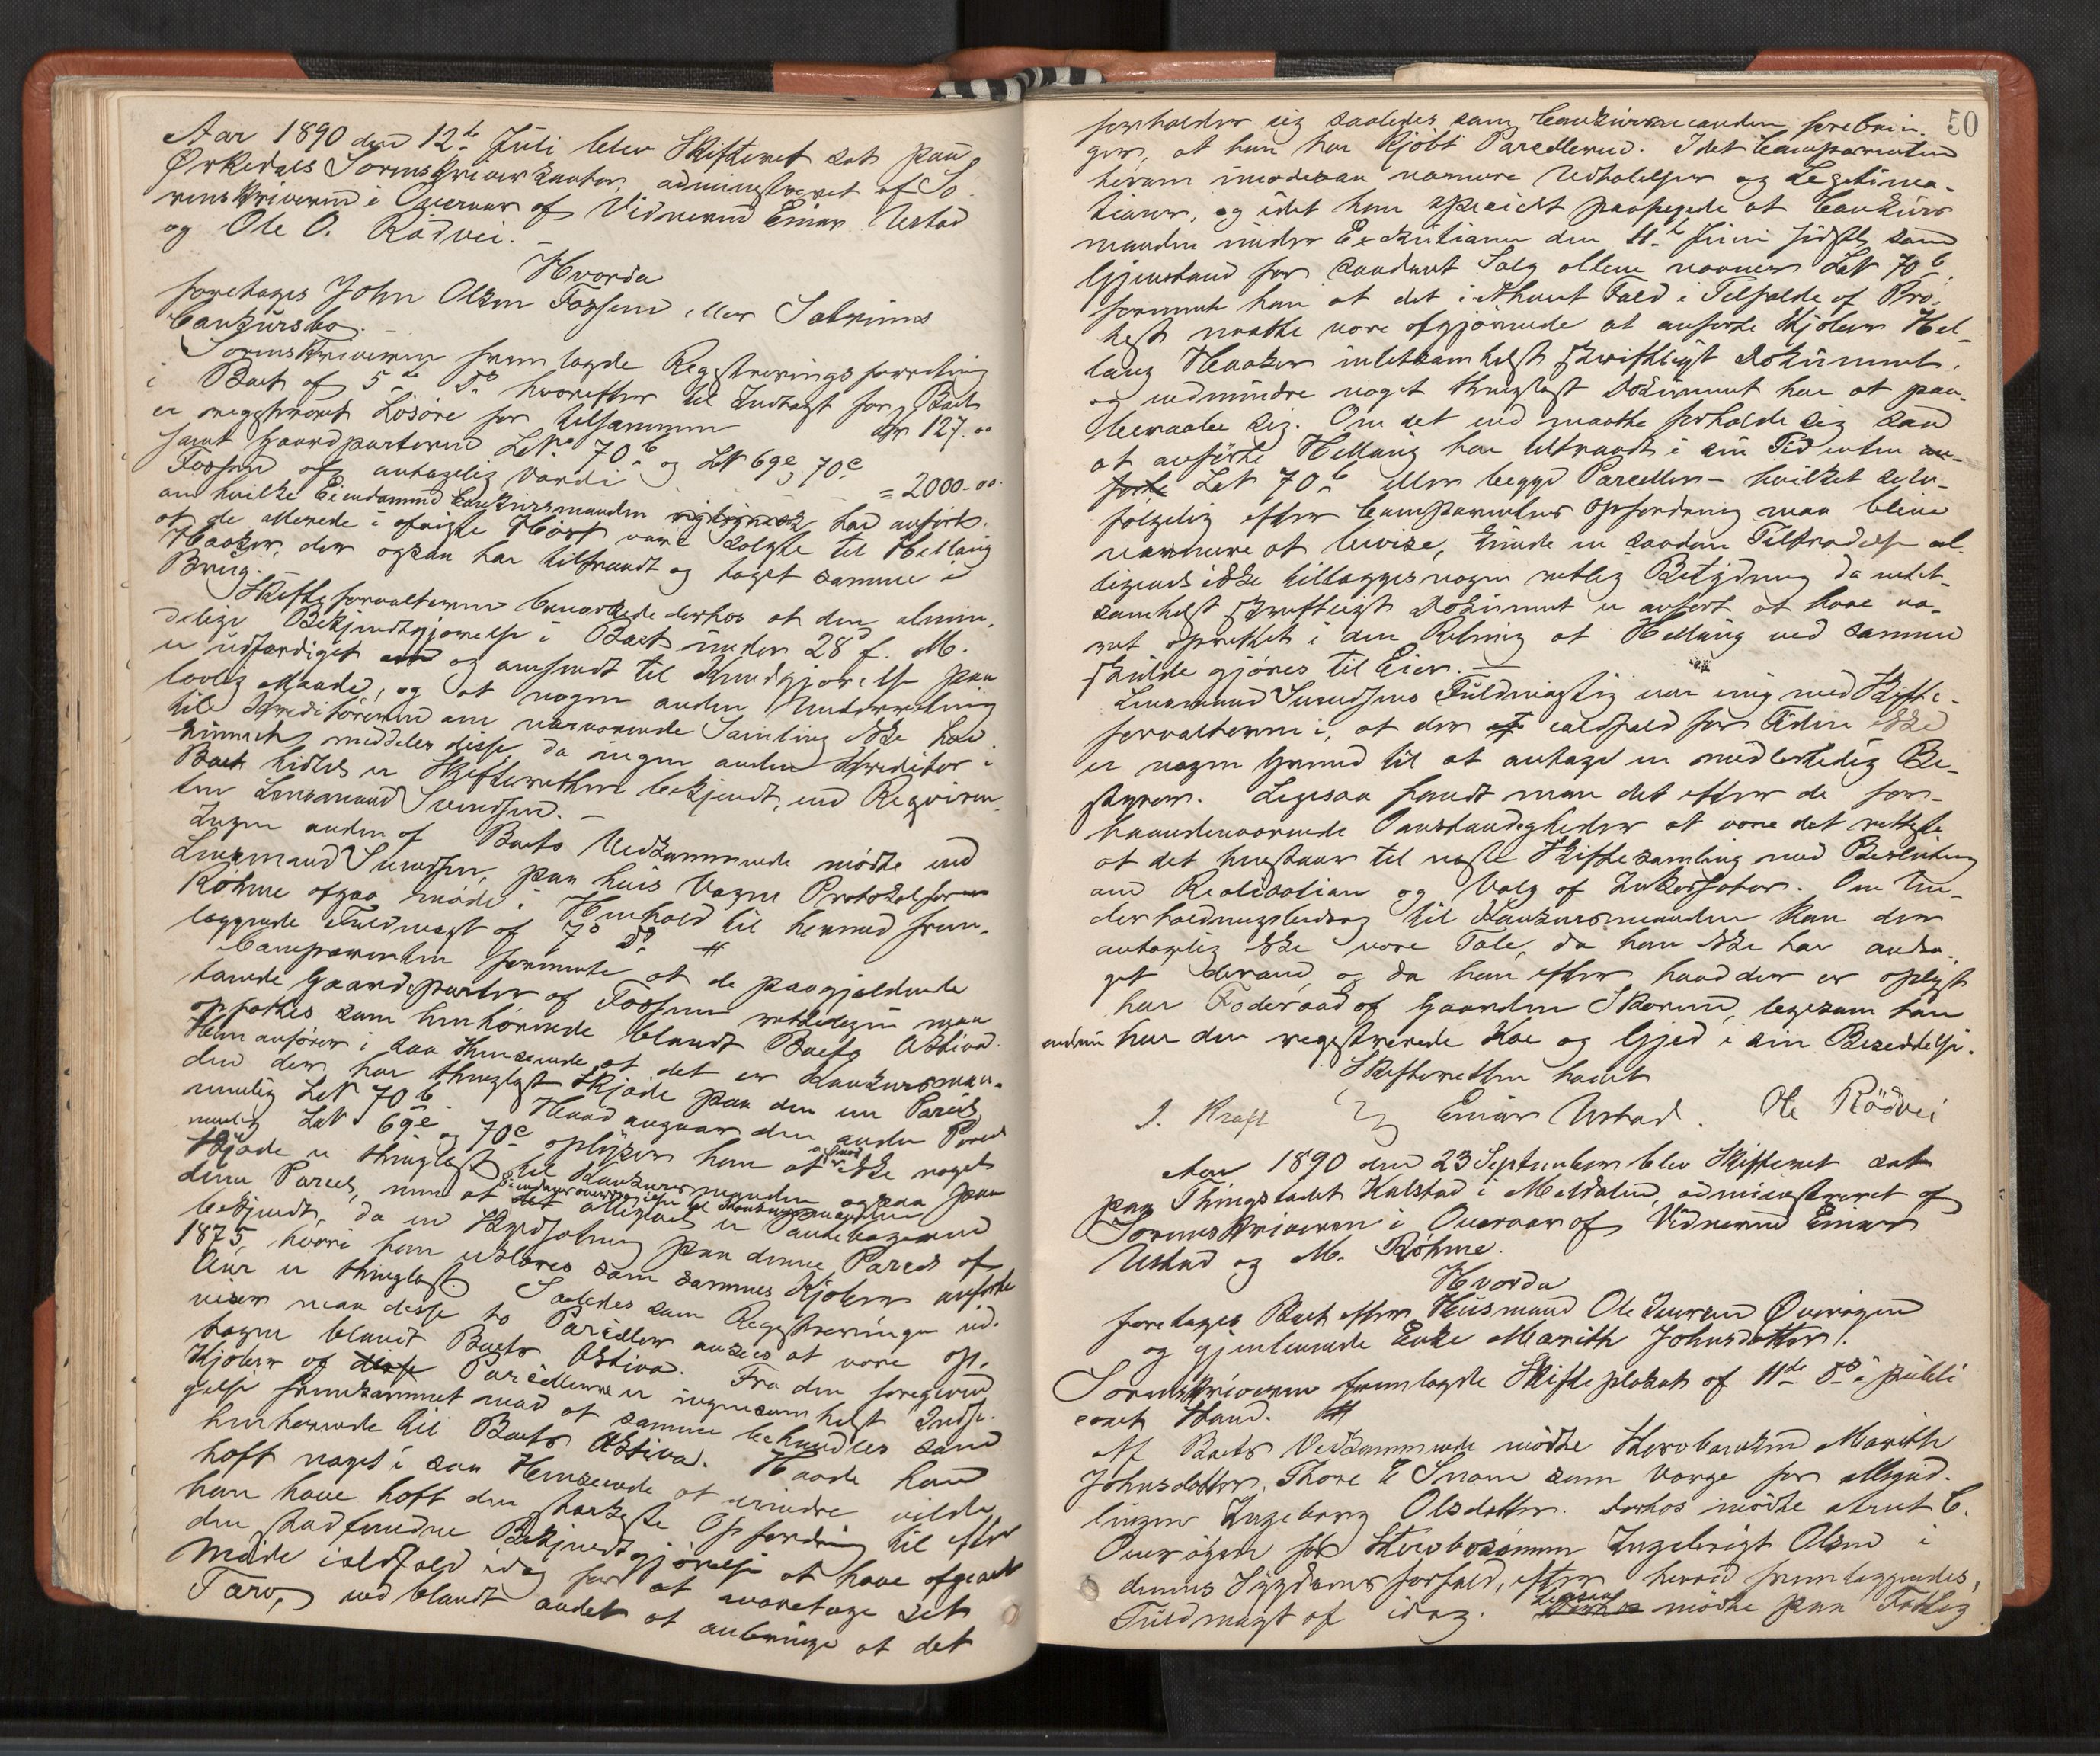 Aar 1890 den 12te Juli blev Skifteret sat paa
Ørkedals Sorenskriverkontor, administreret af So-
renskriveren i Overvær af Vidnerne Einar Ustad
og Ole O. Rødvei. –
Hvorda
foretages John Olsen Fossem eller Sætrums
Concursbo. –
Sorenskriveren fremlagde Registreringsforretning
i Boet af 5te ds hvorefter til Indtægt for Boet
er registreret Løsøre for tilsammen Kr 127.00
samt Gaardparterne LNo 70b og LN 69e, 70c
Fossem af antagelig Værdi = 2000.00
om hvilke Eiendomme Concursmanden har anført
at de allerede i afvigte Høst vare solgte til Helling
Haaker, der ogsaa har tiltraadt og taget samme i
Brug.
Skifteforvalteren bemærkede derhos at den almin-
delige Bekjendtgjørelse i Boet under 28de f. M.
er udfærdiget og ansendt til Kundgjørelse paa
lovlig Maade, og at nogen anden Underretning
til Kreditorerne om nærværende Samling ikke har
kunnet meddeles disse, da ingen anden Kreditor i
Boet hidtil er Skifteretten bekjendt, end Reqviren-
ten Lensmand Svendsen. –
Ingen anden af Boets Vedkommende mødte end
Lensmand Svendsen, paa hvis Vegne Protokolfører
Röhme ogsaa møder i Henhold til hermed frem-
læggende Fuldmagt af 7de ds #
Comparenten formente at de paagjældende
tvende Gaardeparter af Fossem rettelig maa
opfattes som henhørende blandt Boets Aktiva.
Han anfører i saa Henseende, at det er Konkursman-
den der har thinglæst Skjøde paa den ene Parcel,
nemlig LN 70b. Hvad angaar den anden Parcel
nemlig LN 69e og 70c oplyser han at der ikke noget
Skjøde er thinglæst til Konkursmanden ogsaa paa
denne Parcel, men at
bekjendt, da en Skyldsætning paa denne Parcel af
1875, hvori han udtales som sammes Kjøber anførte
Aar er thinglæst. Saaledes som Registreringen ud-
viser maa desse to Parceller ansees at være op-
tagne blandt Boets Aktiva. Fra den foregivne
Kjøber af disse Parcellerne er ingensomhelst Indsi-
gelse fremkommet mod at samme behandles som
henhørende til Boets Aktiva. Havde han
haft noget i saa Henseende at erindre vilde
han have haft den stærkeste Opfordring til efter
den stadfundne Bekjendtgjørelse at have afgivet
Møde ialdfald idag for at varetage sit
Tarv, ved blandt andet at anbringe at det
50
forholder sig saaledes som Concursmanden forebrin-
ger, at han har kjøbt Parcellerne. Idet Comparenten
herom imødesaa nærmere Udtalelser og Legitima-
tioner, og idet han specielt paapegede at Concurs
manden under Executionen den 11te Juni sidstl. som
Gjenstand for saadant Salg allene nævner LN 70b,
formente han at det i ethvert Fald i Tilfælde af Pro-
test maatte være afgjørende at anførte Kjøber Hel-
ling Haaker intetsomhelst skriftligt Dokument,
og endmindre noget thinglæst Dokument har at paa-
beraabe sig. Om det end maatte forholde sig saa
at anførte Helling har tiltraadt i sin Tid enten an-
førte LN 70b eller begge Parceller – hvilket selv-
følgelig efter Comparentens Opfordring maa blive
nærmere at bevise, kunde en saadan Tiltrædelse al-
ligevel ikke tillægges nogen retlig Betydning da intet-
somhelst skriftligt Dokument er anført at have væ-
ret oprettet i den Retning at Helling ved samme
skulde gjøres til Eier. –
Lensmand Svendsens Fuldmægtig var enig med Skifte-
forvalteren i, at der ialdfald for Tiden ikke
er nogen Grund til at antage en midlertidig Be-
styrer. Ligesaa fandt man det efter de for-
haandenværende Omstændigheder at være det retteste
at det henstaar til næste Skiftesamling med Beslutning
om Realisation og Valg af Inkassator. Om Un-
derholdningsbidrag til Konkursmanden kan der
antagelig ikke være Tale, da han ikke har andra-
get derom, og da han efter hvad der er oplyst
har Føderaad af Gaarden Skorem, ligesom han
endnu har den registrerede Ko og Gjed i sin Besiddelse.
Skifteretten hævet
J. Kraft Einar Ustad. Ole Rödvei
Aar 1890 den 23 September blev Skifteret sat
paa Thingstedet Kalstad i Meldalen, administreret af
Sorenskriveren i Overvær af Vidnerne Einar
Ustad og M. Röhme.
Hvorda
foretages Boet efter Husmand Ole Iversen Øverøyen
og gjenlevende Enke Marith Johnsdatter.
Sorenskriveren fremlagde Skifteplakat af 11te ds i publi
ceret Stand. #
Af Boets Vedkommende mødte Stervboenken Marith
Johnsdatter, Thore E Snoen som Værge for Mynd-
lingen Ingeborg Olsdatter. Derhos mødte Arnt C.
Øverøyen for Stervbosønnen Ingebrigt Olsen i
dennes Sygdomsforfald, efter herved fremlæggendes,
Fuldmagt af idag. Ligesaa mødte paa Fattig